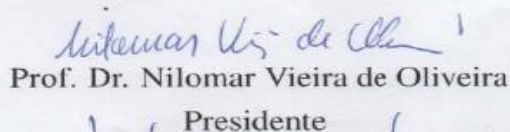 Prof. Dr. Nilomar Vieira de Oliveira
Presidente